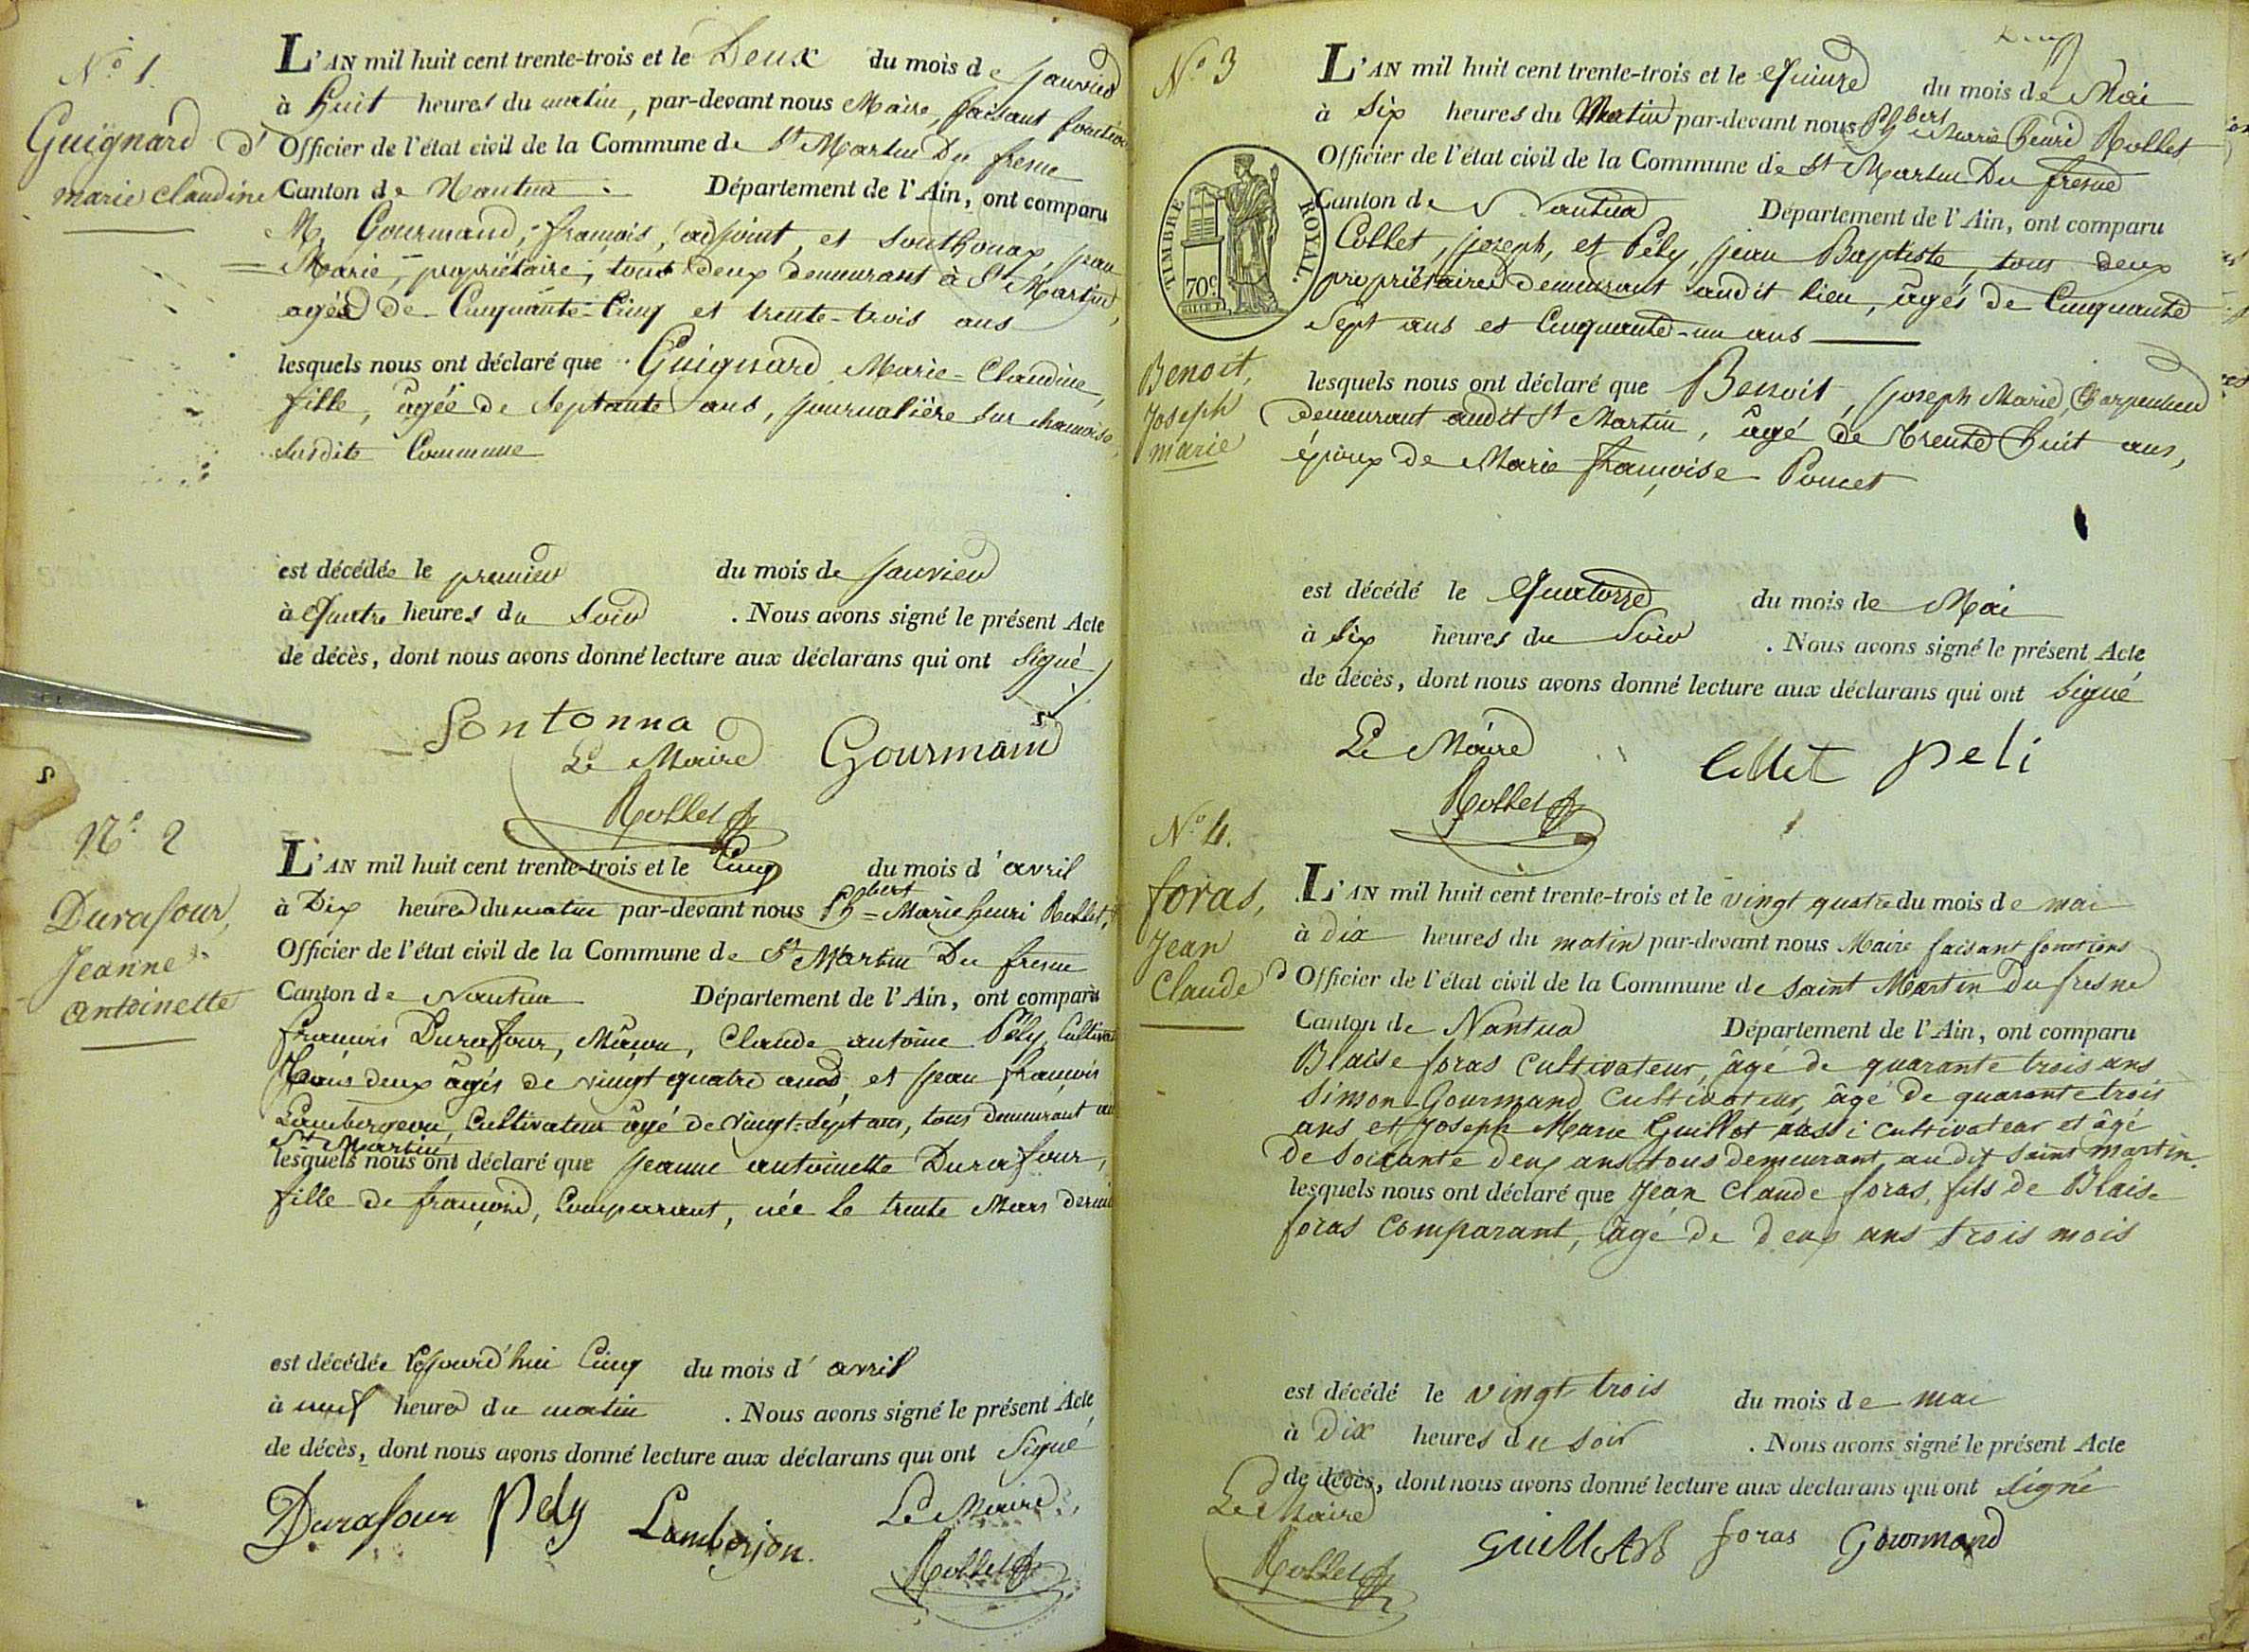 N.º 1.
Guignard
marie claudine
L'AN mil huit cent trente-trois et le Deux du mois de janvier
à huit heures du matin, par-devant nous Maire, faisant fonction
d' Officier de l'état civil de la Commune de St Martin Du fresne
Canton de Nantua Département de l'Ain, ont comparu
M. Gourmand, françois, adjoint, et Sonthonax, jean
Marie, propriétaire, tous deux demeurant à St Martin,
agés de Cinquante-Cinq et trente-trois ans
lesquels nous ont déclaré que Guignard Marie-Claudine,
fille, âgée de Septante ans, journalière sur
Susdite Commune
est décédée le premier du mois de janvier
à Quatre heures du Soir . Nous avons signé le présent Acte
de décès, dont nous avons donné lecture aux déclarans qui ont Signé
Sontonna
Le Maire Gourmand
Rollet
N.º 2
Durafour,
Jeanne
Antoinette
L'AN mil huit cent trente-trois et le Cinq du mois d'avril
à Dix heures du matin par-devant nous Phbert Marie henri Rollet,
Officier de l'état civil de la Commune de St Martin Du fresne
Canton de Nantua Département de l'Ain, ont comparu
françois Durafour, Maçon, Claude antoine Pély, Cultivat
Tous deux âgés de vingt quatre ans, et jean françois
Lambergeon, Cultivateur âgé de vingt-sept ans, tous demeurant au
St Martin
lesquels nous ont déclaré que jeanne antoinette Durafour,
fille de françois, Comparant, née le trente Mars dernier
est décédée aujourd'hui Cinq du mois d'avril
à neuf heures du matin . Nous avons signé le présent Acte
de décès, dont nous avons donné lecture aux déclarans qui ont Signé
Durafour Pely Lamberjon. Le Maire,
Rollet
N.º 3
TIMBRE ROYAL.
70c
Benoit,
Joseph
marie
L'AN mil huit cent trente-trois et le Quinze du mois de Mai
à Six heures du Matin par-devant nous Phbert Marie henri Rollet
Officier de l'état civil de la Commune de St Martin Du fresne
Canton de Nantua Département de l'Ain, ont comparu
Collet, joseph, et Pély, jean Baptiste, tous deux
propriétaires demeurant audit lieu, âgés de Cinquante
Sept ans et Cinquante-un ans
lesquels nous ont déclaré que Benoit, joseph Marie, Charpentier
demeurant audit St Martin, âgé de trente huit ans,
époux de Marie françoise Poncet
est décédé le Quatorze du mois de Mai
à Six heures du Soir . Nous avons signé le présent Acte
de décès, dont nous avons donné lecture aux déclarans qui ont Signé
Le Maire Collet peli
Rollet
N.º 4.
foras,
Jean
Claude
L'AN mil huit cent trente-trois et le vingt quatre du mois de mai
à dix heures du matin par-devant nous Maire faisant fonctions
d' Officier de l'état civil de la Commune de Saint Martin Du fresne
Canton de Nantua Département de l'Ain, ont comparu
Blaise foras Cultivateur, âgé de quarante trois ans
Simon Gourmand Cultivateur, âgé de quarante trois
ans et Joseph Marie Guillot aussi cultivateur et âgé
de soixante deux ans tous demeurant audit Saint Martin.
lesquels nous ont déclaré que Jean Claude foras, fils de Blaise
foras Comparant, âgé de deux ans trois mois
est décédé le vingt trois du mois de mai
à Dix heures du soir . Nous avons signé le présent Acte
de décès, dont nous avons donné lecture aux déclarans qui ont signé
Le Maire
Rollet Guillot foras Gourmand